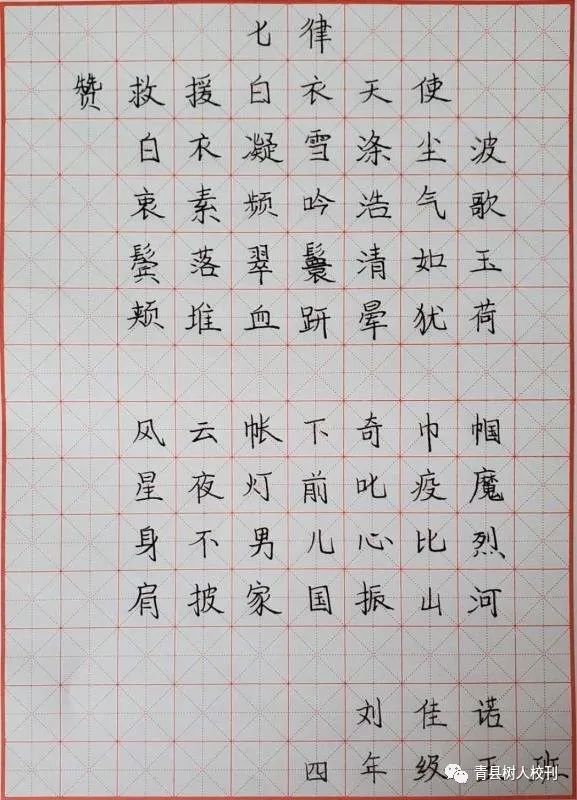 七律
赞救援白衣天使
白衣凝雪涤尘波
衷素频吟浩气歌
鬓落翠鬟清如玉
颊堆血趼晕犹荷
风云帐下奇巾帼
星夜灯前叱疫魔
身不男儿心比烈
肩披家国振山河
刘佳诺
四年级 班
青县树人校刊